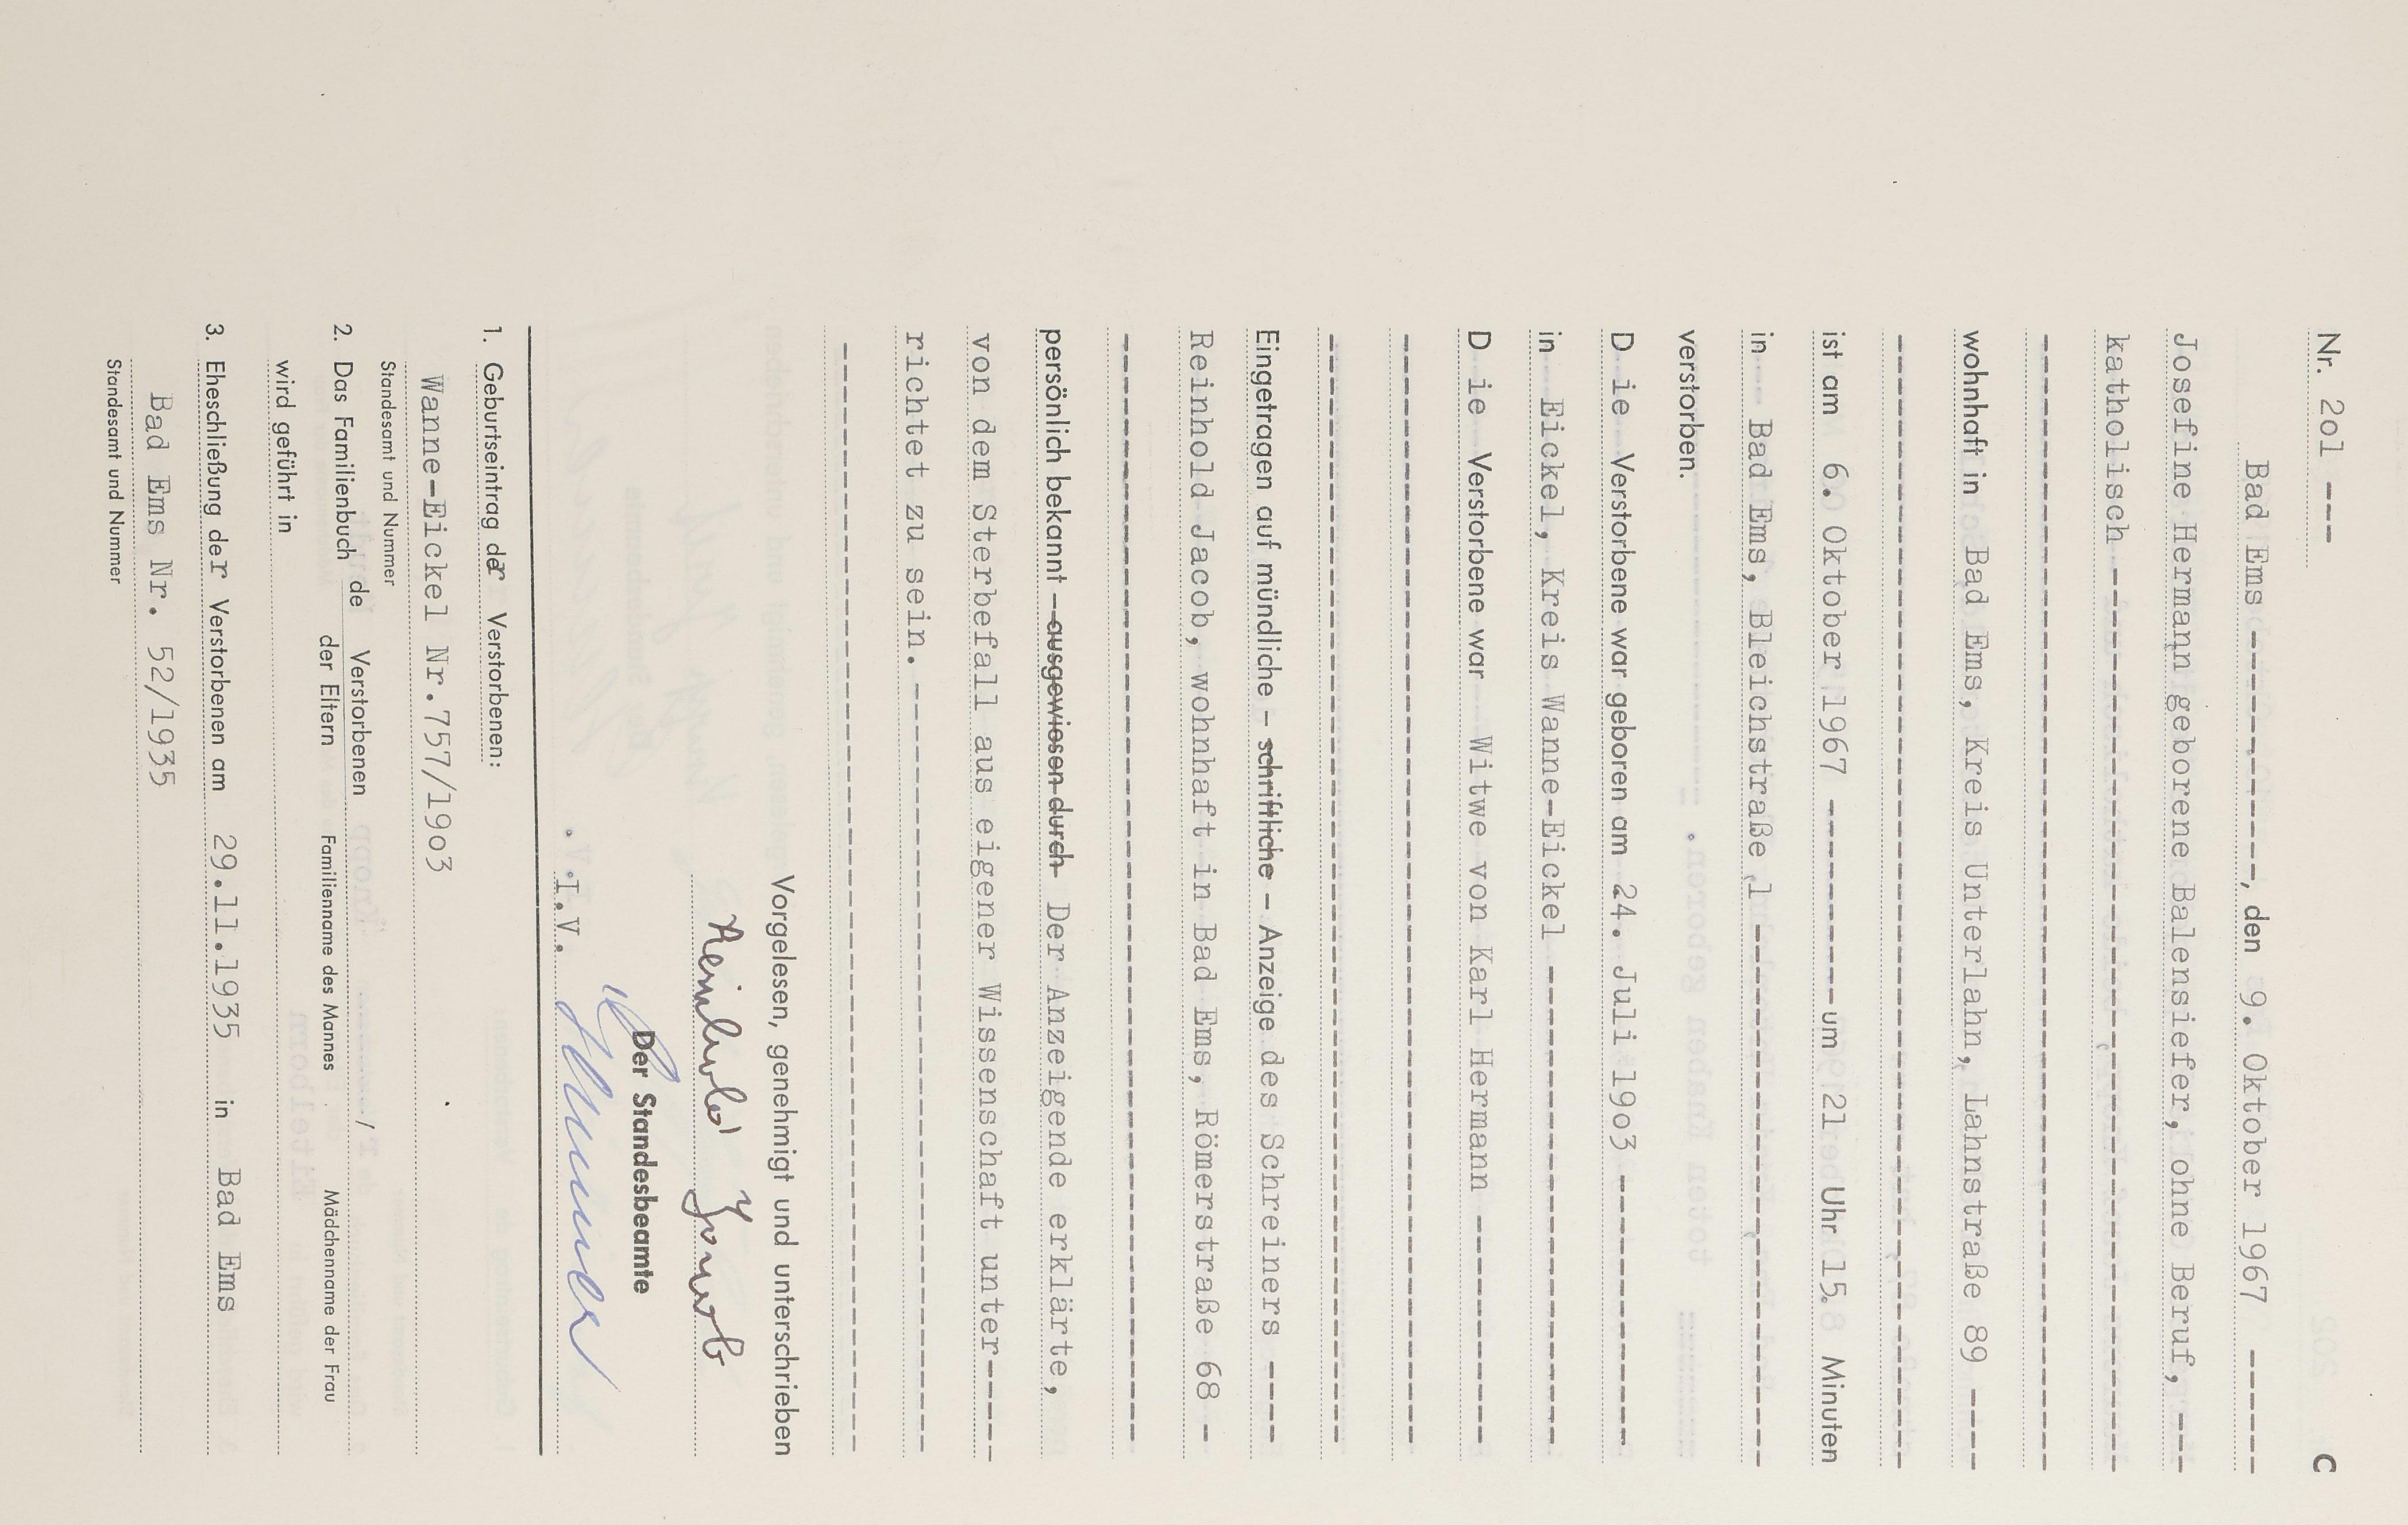 C
Nr. 2ol ---
Bad Ems ------------, den 9. Oktober 1967 ------
Josefine Hermann geborene Balensiefer, ohne Beruf, ---
katholisch ----------------------------------------
----------------------------------------------------
wohnhaft in Bad Ems, Kreis Unterlahn, Lahnstraße 89 ----
----------------------------------------------------
ist am 6. Oktober 1967 ---------- um 21 Uhr 15 Minuten
in Bad Ems, Bleichstraße 1 -------------------------
verstorben.
D ie Verstorbene war geboren am 24. Juli 19o3 ------------
in Eickel, Kreis Wanne-Eickel ----------------------
D ie Verstorbene war Witwe von Karl Hermann -----------
----------------------------------------------------
----------------------------------------------------
Eingetragen auf mündliche – schriftliche – Anzeige des Schreiners ----
Reinhold Jacob, wohnhaft in Bad Ems, Römerstraße 68 -
----------------------------------------------------
persönlich bekannt – ausgewiesen durch Der Anzeigende erklärte,
von dem Sterbefall aus eigener Wissenschaft unter-----
richtet zu sein.------------------------------------
----------------------------------------------------
Vorgelesen, genehmigt und unterschrieben
Reinhold Jacob
Der Standesbeamte
I.V.
1. Geburtseintrag der Verstorbenen:
Wanne-Eickel Nr.757/19o3
Standesamt und Nummer
2. Das Familienbuch de Verstorbenen /
der Eltern Familienname des Mannes Mädchenname der Frau
wird geführt in
3. Eheschließung der Verstorbenen am 29.11.1935 in Bad Ems
Bad Ems Nr. 52/1935
Standesamt und Nummer